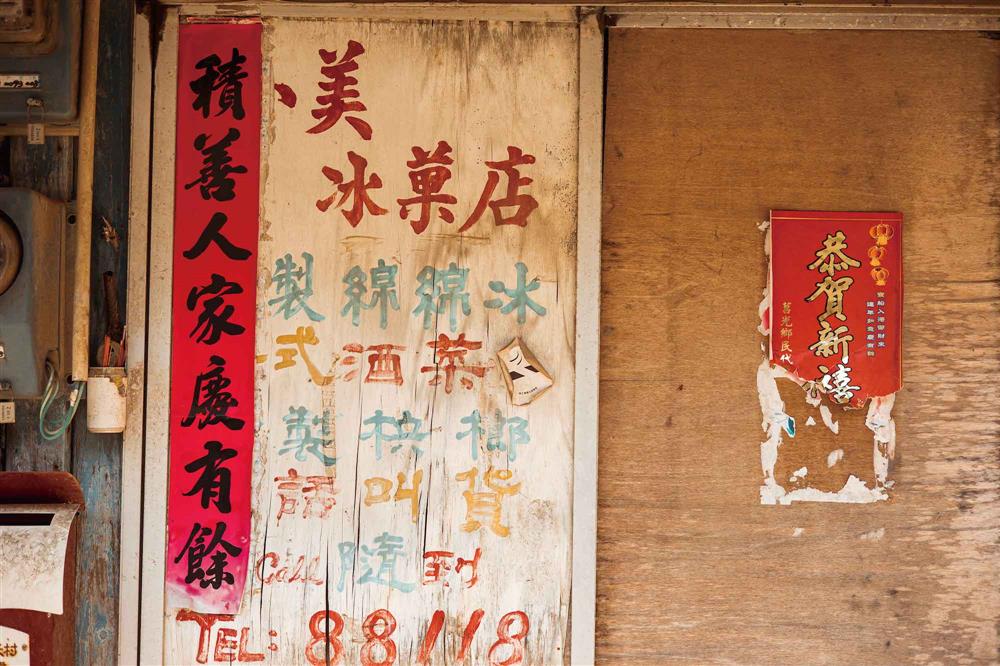 積善人家慶有餘
美
冰菓店
製綿綿冰
式酒菜
製榔
話叫貨
Call隨到
TEL: 88118
恭賀新禧
莒光鄉民代